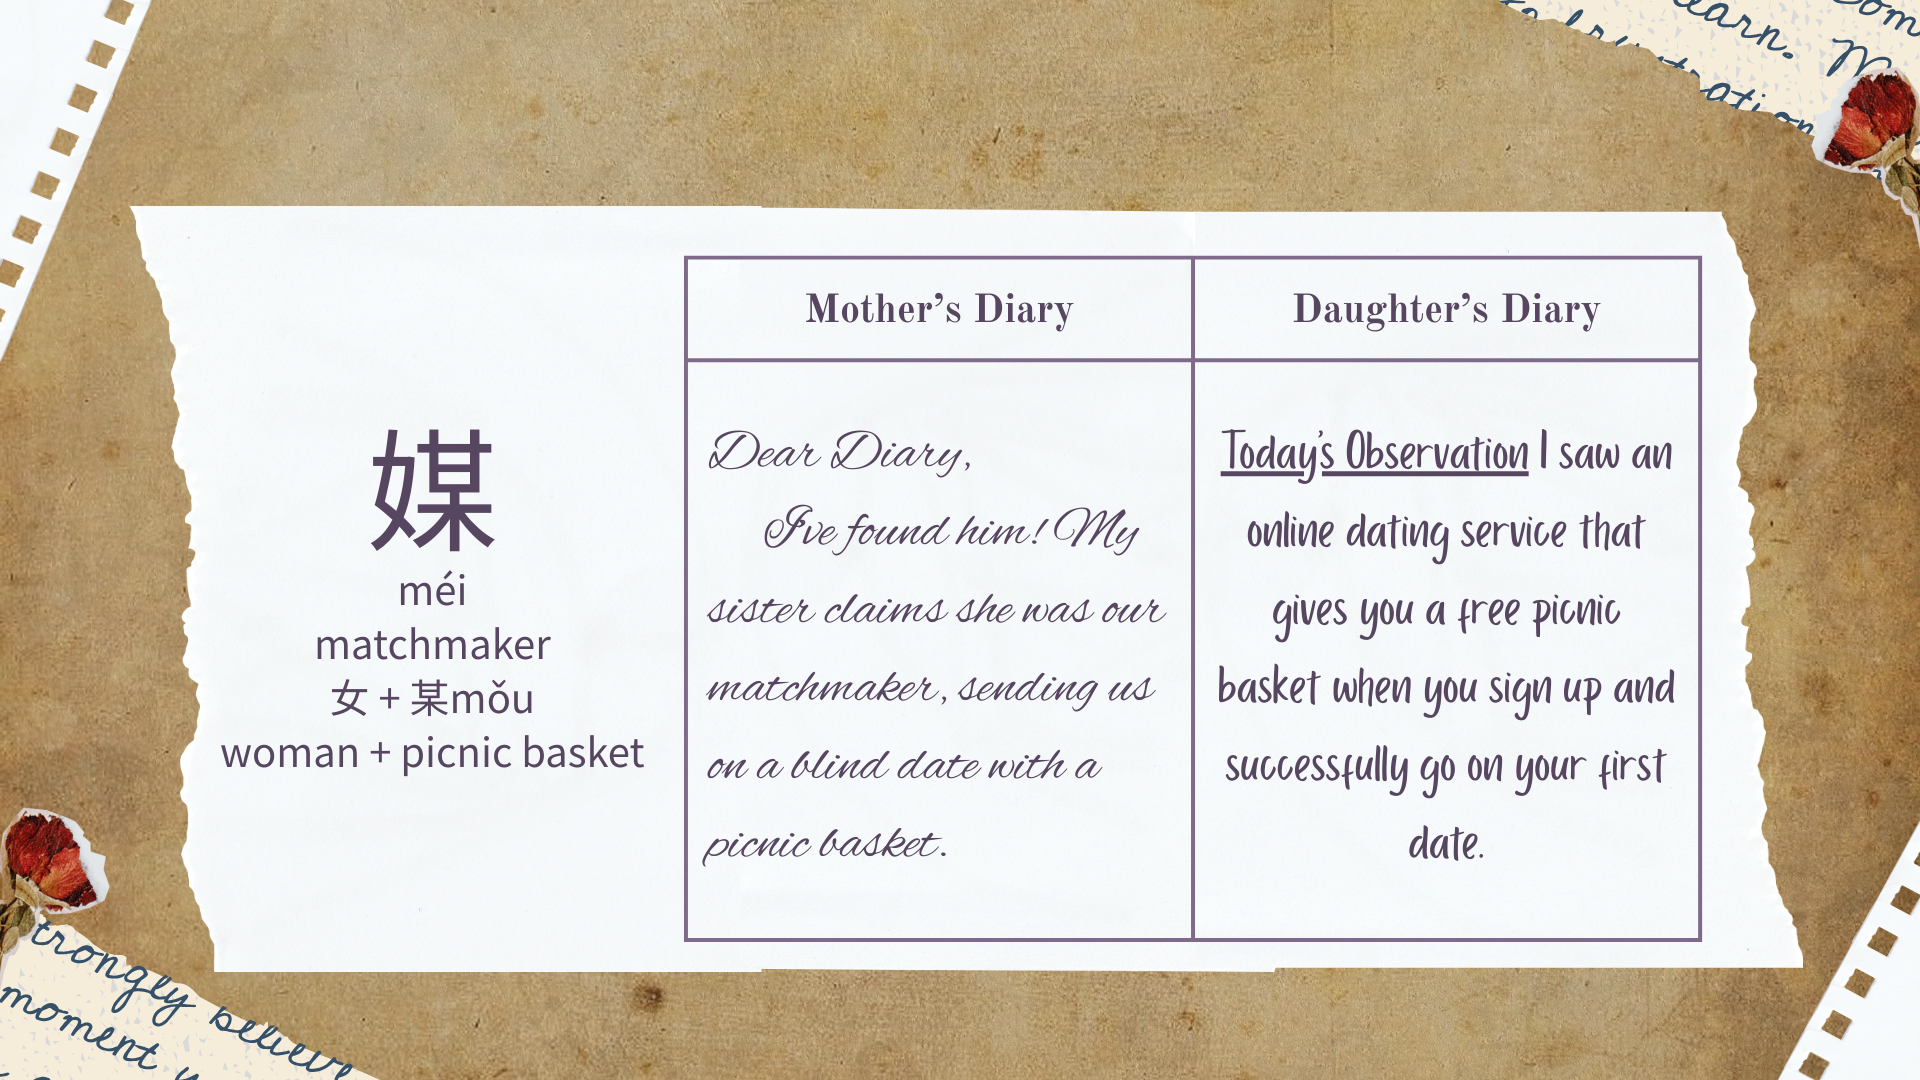 earn. M
媒
méi
matchmaker
女 + 某mǒu
woman + picnic basket
Mother's Diary
Dear Diary,
I've found him! My
sister claims she was our
matchmaker, sending us
on a blind date with a
picnic basket.
Daughter's Diary
Today's Observation I saw an
online dating service that
gives you a free picnic
basket when you sign up and
successfully go on your first
date.
trongly believe
moment y